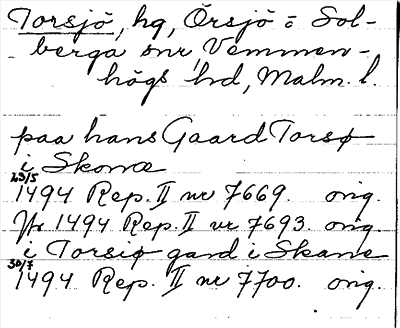 Torsjö, hg, Örsjö = Sol-
berga snr, Vemmen-
högs hd, Malm. l.
paa hans Gaard Torsø
i Skonæ
23/5
1494 Rep. II nr 7669. orig.
1494 Rep. II nr 7693. orig.
i Torsiø gard i Skane
30/7
1494 Rep. II nr 7700. orig.